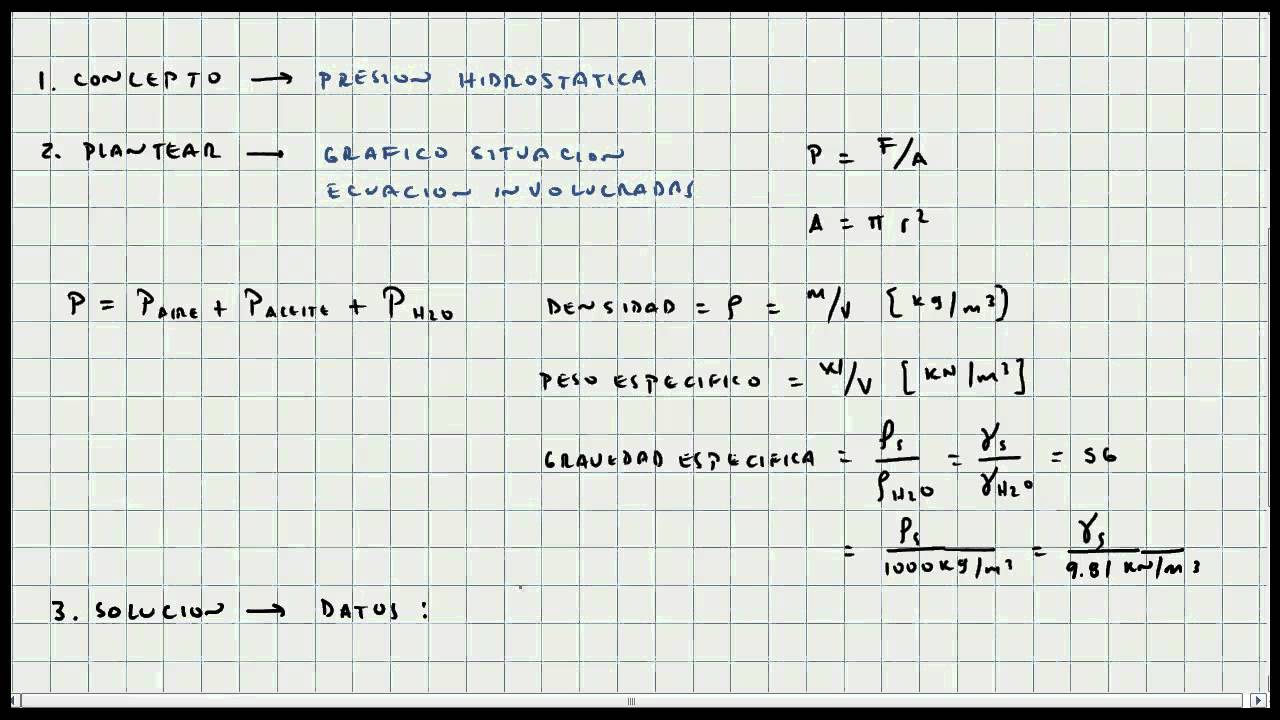 1. CONCEPTO → PRESION HIDROSTATICA
2. PLANTEAR → GRAFICO SITUACION
ECUACION INVOLUCRADAS
P = F/A
A = π r²
P = P_AIRE + P_ACEITE + P_H2O
DENSIDAD = ρ = m/V [kg/m³]
PESO ESPECIFICO = W/V [KN/m³]
GRAVEDAD ESPECIFICA = ρs/ρH2O = γs/γH2O = SG
= ρs/1000 kg/m³ = γs/9.81 KN/m³
3. SOLUCION → DATOS :